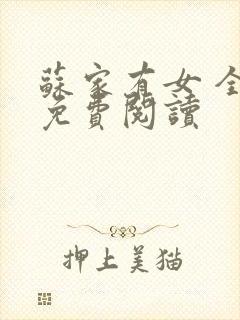 蘇家有女全
免費閱讀
押上美猫